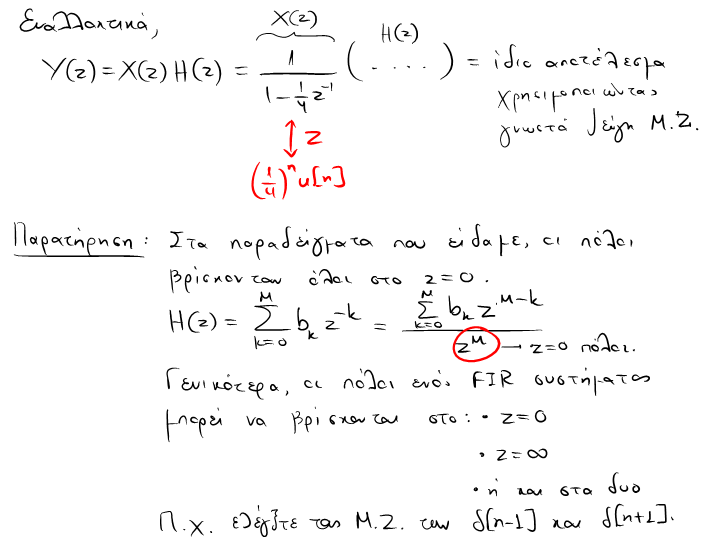 Εναλλακτικά,
Y(z) = X(z) H(z) = \overbrace{\frac{1}{1 - \frac{1}{4} z^{-1}}}^{X(z)} \overset{H(z)}{( .... )} = ίδιο αποτέλεσμα
χρησιμοποιώντας
γνωστά ζεύγη Μ.Ζ.
↕ Z
(\frac{1}{4})^n u[n]
Παρατήρηση: Στα παραδείγματα που είδαμε, οι πόλοι
βρίσκονταν όλοι στο z=0.
H(z) = \sum_{k=0}^{M} b_k z^{-k} = \frac{\sum_{k=0}^{M} b_k z^{M-k}}{z^M} → z=0 πόλοι.
Γενικότερα, οι πόλοι ενός FIR συστήματος
μπορεί να βρίσκονται στο: • z=0
• z=∞
• ή και στα δυο
Π.χ. ελέγξτε τον Μ.Ζ. των δ[n-1] και δ[n+1].